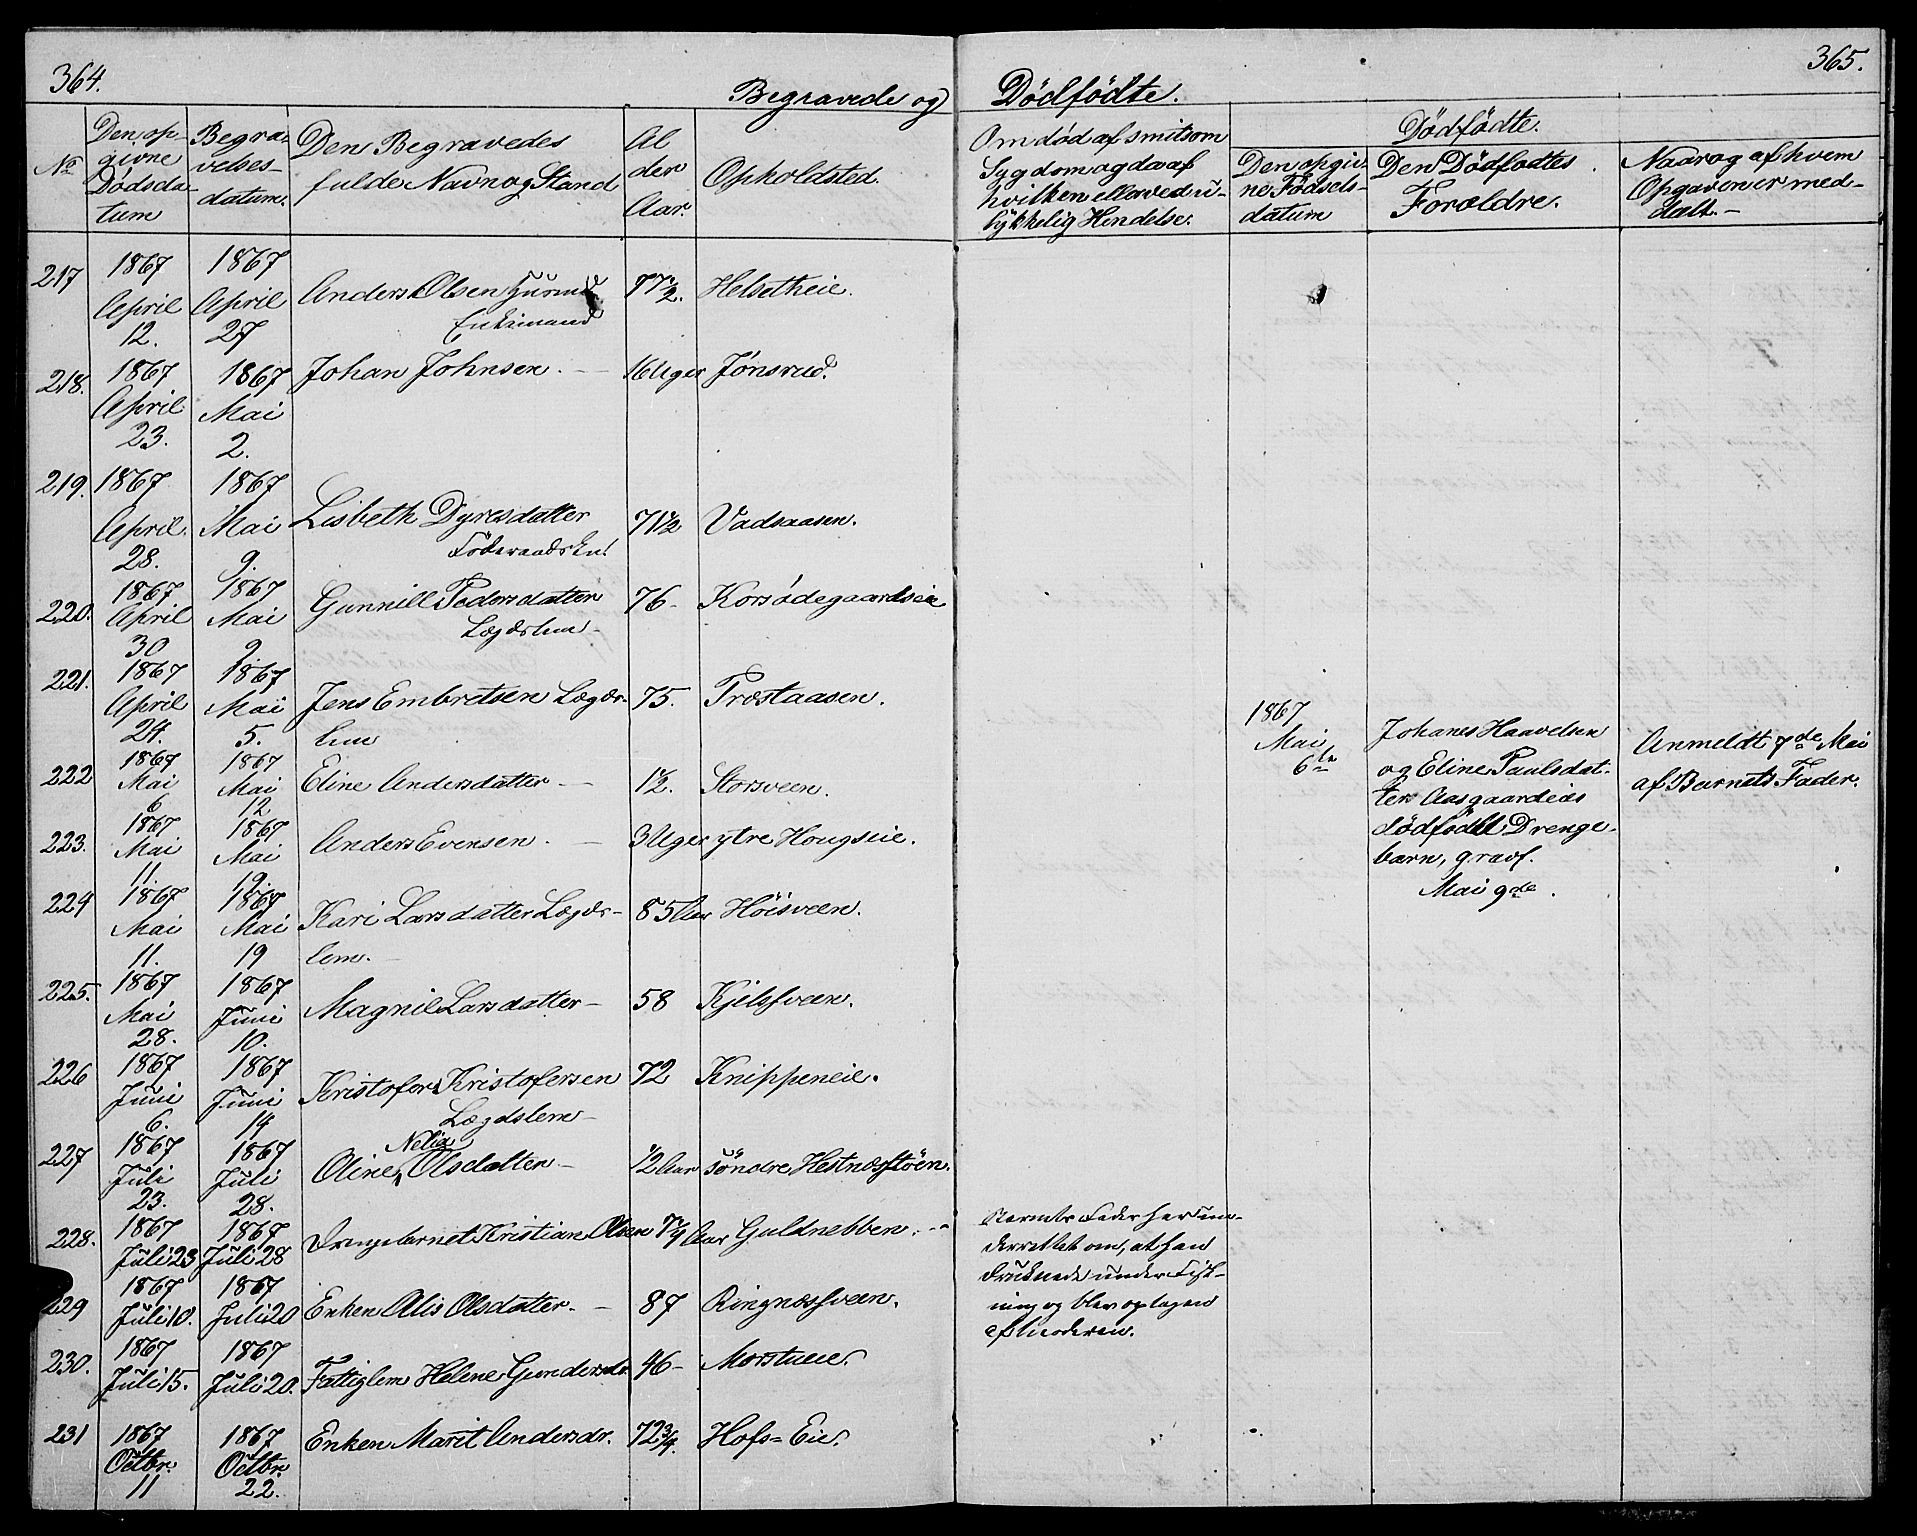 364.
365.
Begravede og Dödfödte.
No
Den op-
givne
Dödsda-
tum
Begra-
velses-
datum.
Den Begravedes
fulde Navn og Stand
Al
der
Aar.
Opholdsted.
Om död af smitsom
Sygdom og da af
hvilken eller ved u-
lykkelig Hendelse.
Dödfödte.
Den opgiv-
ne Födsels-
datum
Den Dödfödtes
Forældre.
Naar og af hvem
Opgaven er med-
delt.-
217 1867 April 12. 1867 April 27 Anders Olsen
Enkemand 77½. Helsetheie.
218. 1867 April 23. 1867 Mai 2. Johan Johnsen. - 16 Uger Jönsrud.
219. 1867 April. 28. 1867 Mai 9. Lisbeth Dyresdatter
Föderaads 71½ Vadsaasen.
220. 1867 April 30 1867 Mai 9. Gunnill Pedersdatter
Lægdslem - 76- Korsödegaardseie
221. 1867 April 24. 1867 Mai 5. Jens Embretsen Lægds-
lem 75. Træstaasen.
222 1867 Mai 6. 1867 Mai 12. Eline Andersdatter - ½. Storsveen.
223. 1867 Mai 11. 1867 Mai 19. Anders Evensen. - 3 Uger ytre Hougseie.
224 1867 Mai 11. 1867 Mai 19 Kari Larsdatter Lægds-
lem. - 85 Aar Höisveen.
225. 1867 Mai 28. 1867 Juni 10. Magnil Larsdatter - 58 Kjelsveen.
226 1867 Juni 6. 1867 Juni 14 Kristofer Kristofersen
Lægdslem - 72 Knippeneie.
227 1867 Juli 23. 1867 Juli 28. Oline Nelia Olsdatter - ½ Aar söndre Hestnæsstöen.
228. 1867 Juli 23 1867 Juli 28 Drengebarnet Kristian Olsen 7¼ Aar Guldnebben.
229 1867 Juli 10. 1867 Juli 20 Enken Alis Olsdatter. - 87 Ringnæssveen.
230. 1867 Juli 15. 1867 Juli 20. Fattiglem Helene Gundersdr. 46- Morstueie.
231 1867 Octbr. 11 1867 Octbr. 22. Enken Marit Andersdr. 72¾. Hofs=Eie.
1867
Mai
6te
Johanes Haavelsen
og Eline Paulsdat-
ter Aasgaardeies
dödfödt Drenge-
barn, gravf.
Mai 9de.
Anmeldt 7de Mai
af Barnets Fader.
Barnets Fader har un-
derrettet om, at han
druknede under Fisk-
ning og blev optagen
af Moderen.